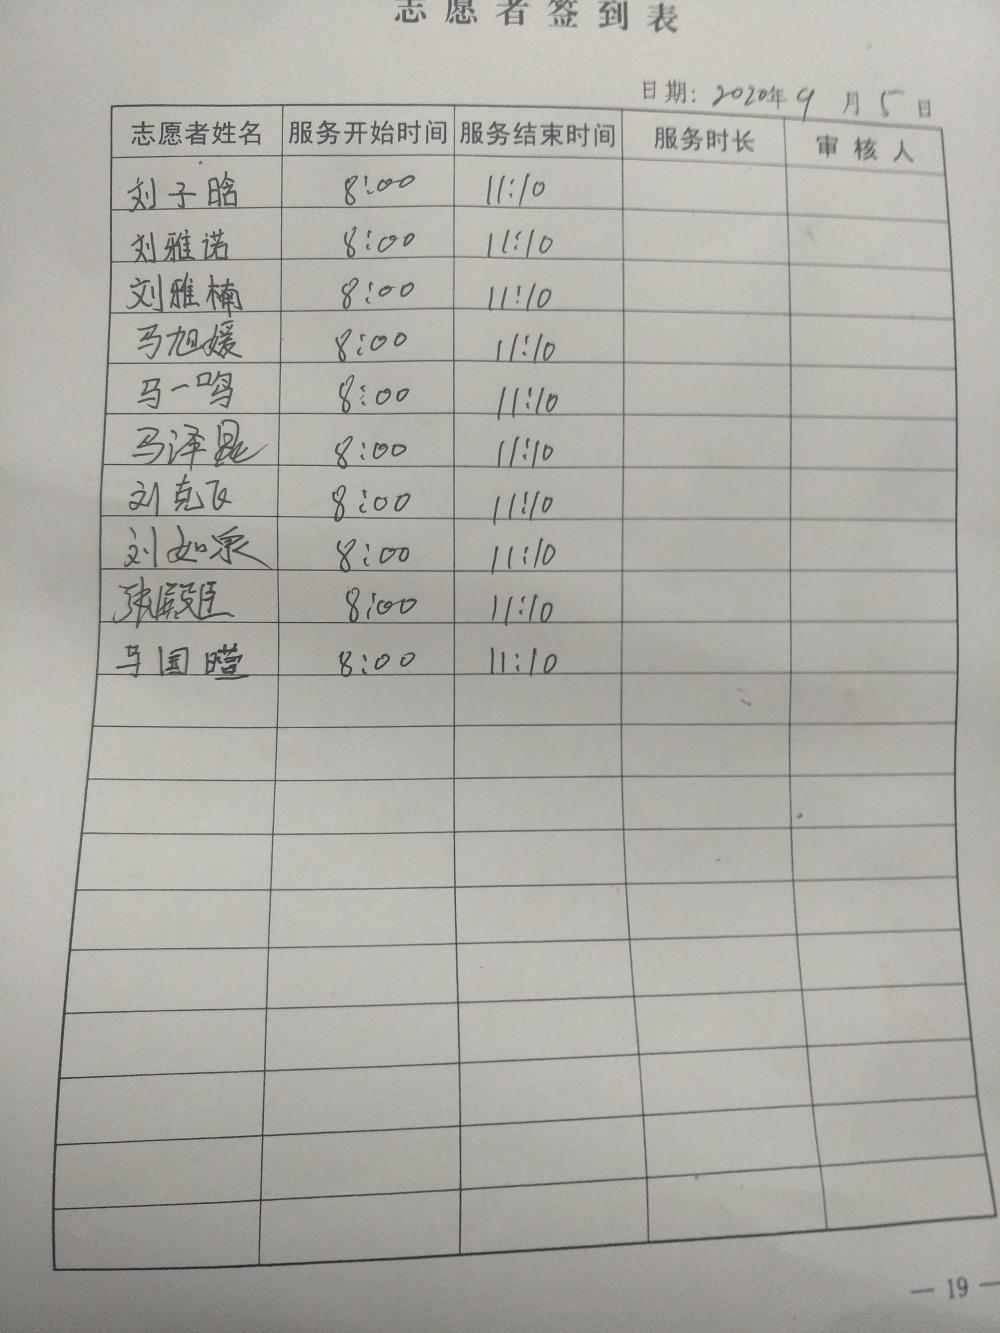 志愿者签到表
日期: 2020年9月5日
志愿者姓名 服务开始时间 服务结束时间 服务时长 审核人
刘子晗 8:00 11:10
刘雅诺 8:00 11:10
刘雅楠 8:00 11:10
马旭媛 8:00 11:10
马一鸣 8:00 11:10
马泽昆 8:00 11:10
刘克飞 8:00 11:10
刘如泉 8:00 11:10
张殿臣 8:00 11:10
马国暄 8:00 11:10
— 19 —